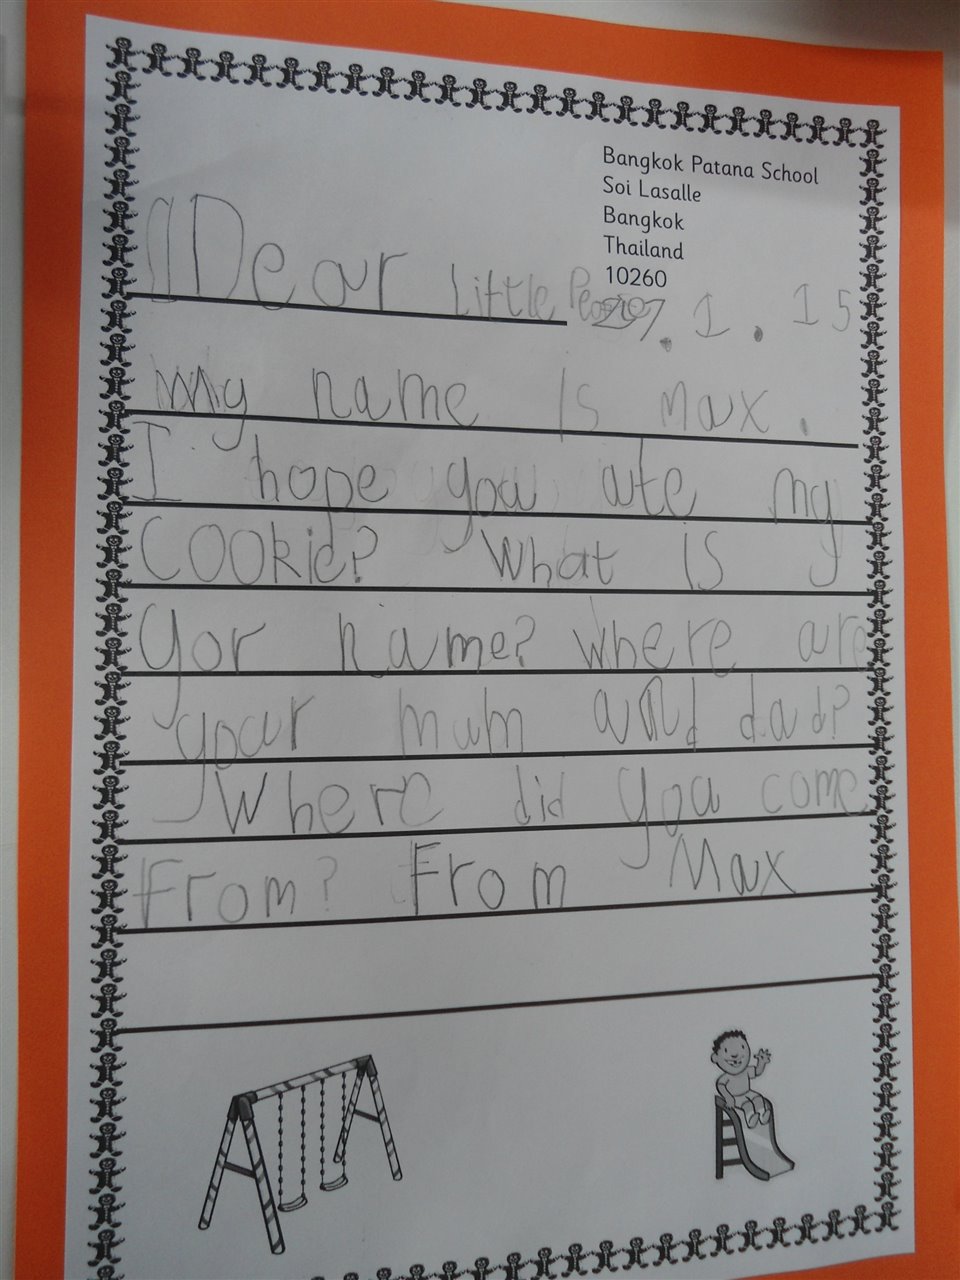 Bangkok Patana School
Soi Lasalle
Bangkok
Thailand
10260
Dear Little People
7.1.15
My name is Max.
I hope you ate my
cookie? What is
yor name? Where are
your mum and dad?
Where did you come
From? From Max